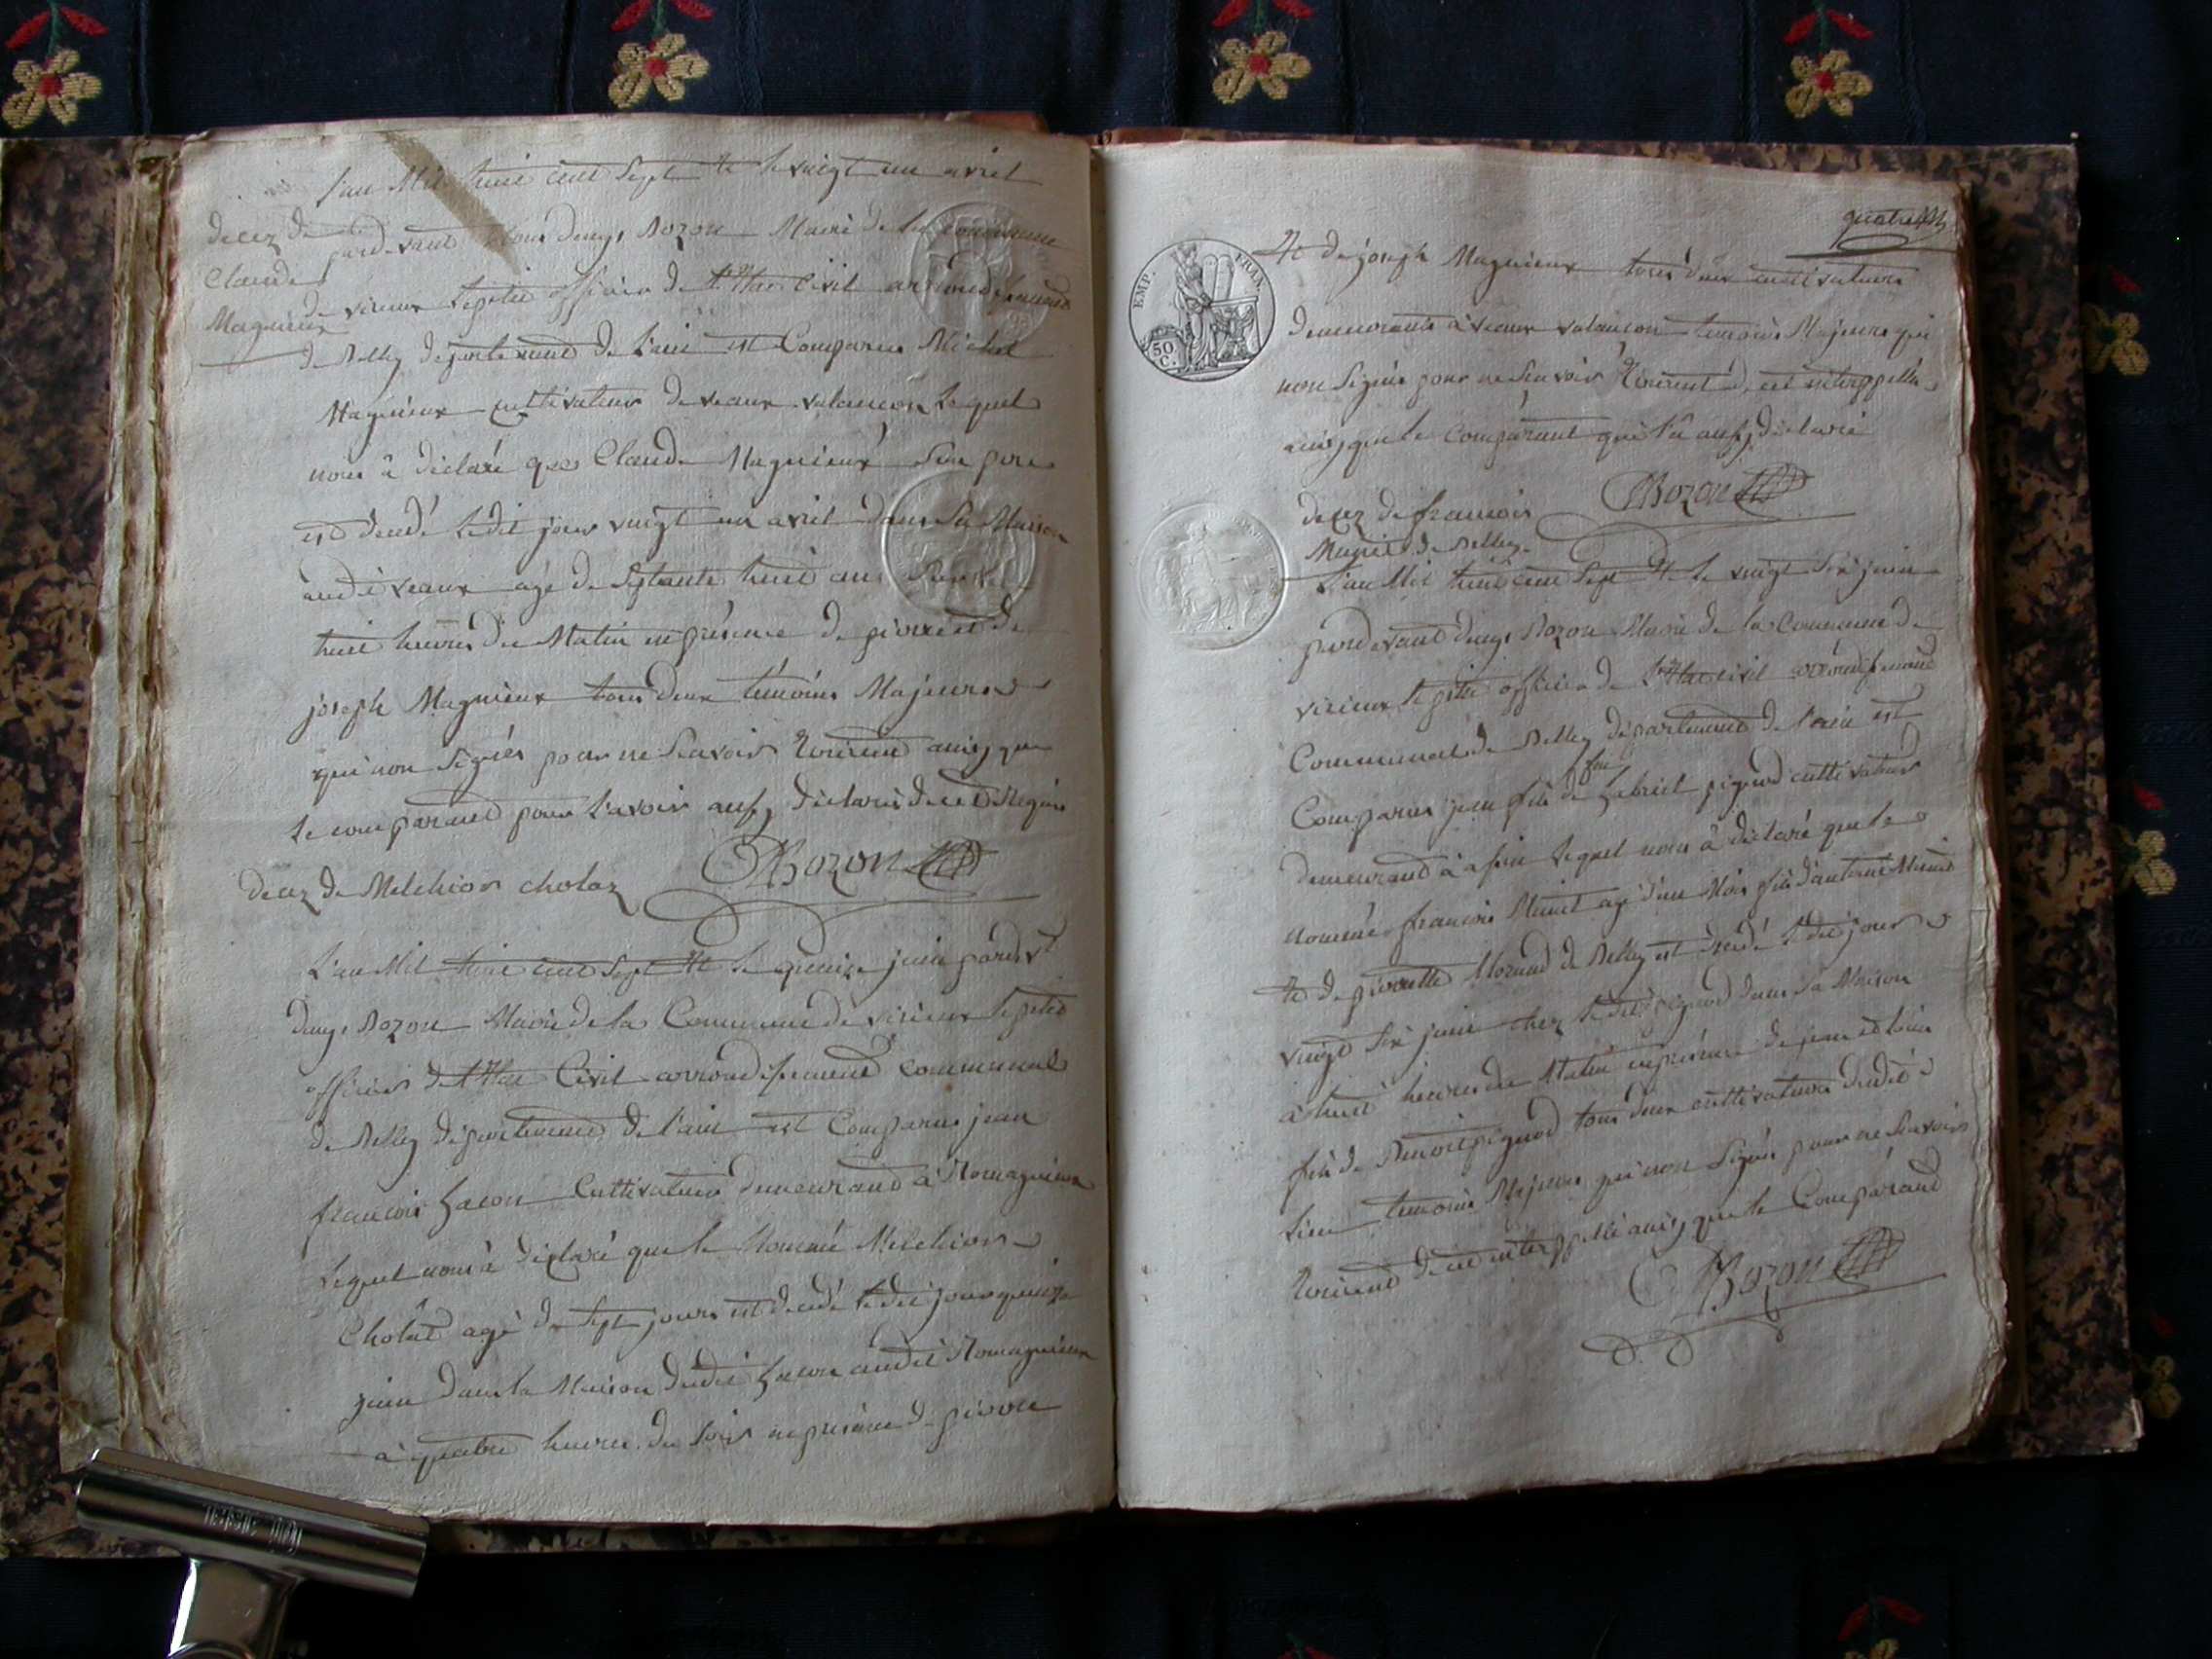 l'an Mil huit cent sept et le vingt un avril
decez de
Claude
Magnieux
pardevant nous denys Bozon Maire de la commune
de virieux le petit officier de l'Etat Civil arrondissement
de Belley departement de l'ain est Comparu Michel
Magnieux cultivateur de veaux valancon lequel
nous à déclaré que Claude Magnieux son pere
est decedé ledit jour vingt un avril dans sa Maison
audit veaux agé de septante huit ans
huit heures du Matin en présence de pierre et de
joseph Magnieux tous deux témoins Majeurs
qui non signés pour ne scavoir ainsy que
le comparant pour l'avoir aussy déclaré de ce Requis
Bozon
decez de Melchior cholaz
L'an Mil huit cent sept et le quinze juin pardevt
denys Bozon Maire de la Commune de virieux le petit
officier de l'Etat Civil arrondissement communal
de Belley département de l'ain est Comparu jean
francois Cultivateur demeurant à Romagnieux
Lequel nous à déclaré que le Nommé Melchior
Cholat agé de sept jours est decedé ledit jour quinze
juin dans la Maison dudit audit Romagnieux
à quatre heures du soir en présence de pierre
quatre
EMP. FRAN.
50 C.
et de joseph Magnieux tous deux cultivateurs
demeurants à veaux valancon temoins Majeurs qui
non signés pour ne scavoir de ce interpellés
ainsy que le comparant qui l'a aussy déclaré
Bozon
decez de francois
Munet de Belley
L'an Mil huit cent sept et le vingt six juin
pardevant denys Bozon Maire de la Commune de
virieux le petit officier de l'Etat civil arrondissement
Communal de Belley département de l'ain est
feu
Comparu jean fils de gabriel pignod cultivateur
demeurant à lequel nous à déclaré que le
nommé francois Munet agé d'un Mois fils d'antoine Munet
et de pierrette Morand de Belley est decedé ledit jour
vingt six juin chez ledit pignod dans sa Maison
à huit heures du Matin en présence de jean et louis
fils de Benoit pignod tous deux cultivateurs dudit
lieu temoins Majeurs qui non signés pour ne scavoir
de ce interpellé ainsy que le Comparant
Bozon